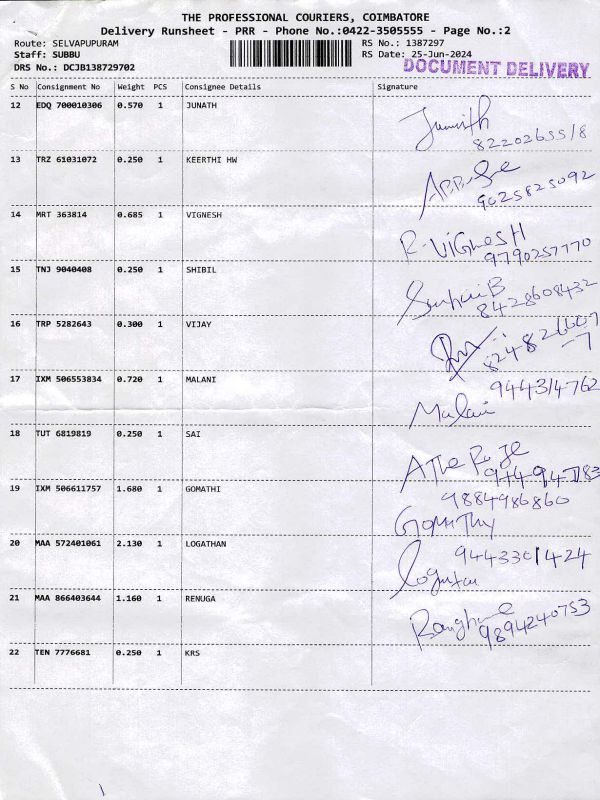 THE PROFESSIONAL COURIERS, COIMBATORE
Delivery Runsheet - PRR - Phone No.:0422-3505555 - Page No.:2
Route: SELVAPUPURAM
RS No.: 1387297
Staff: SUBBU
RS Date: 25-Jun-2024
DRS No.: DCJB138729702
DOCUMENT DELIVERY
S No Consignment No Weight PCS Consignee Details Signature
12 EDQ 700010306 0.570 1 JUNATH
Junath
8220265518
13 TRZ 61031072 0.250 1 KEERTHI HW
9025825092
14 MRT 363814 0.685 1 VIGNESH
R. VIGNESH
9790257770
15 TNJ 9040408 0.250 1 SHIBIL
8428608432
16 TRP 5282643 0.300 1 VIJAY
17 IXM 506553834 0.720 1 MALANI
944314762
Malani
18 TUT 6819819 0.250 1 SAI
19 IXM 506611757 1.680 1 GOMATHI
9884986860
GOMATHY
20 MAA 572401061 2.130 1 LOGATHAN
9443301424
21 MAA 866403644 1.160 1 RENUGA
9894240753
22 TEN 7776681 0.250 1 KRS